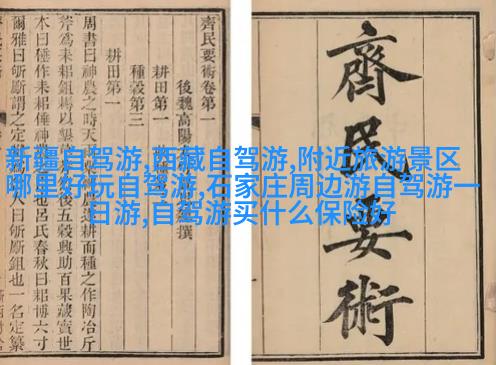 齊民要術
齊民要術卷第一
後魏高陽 撰
耕田第一
種穀第三
耕田第一
周書曰神農之時天 耕而種之作陶冶斤
斧爲耒耜鉏耨以墾 後五穀興助百果藏實世
本曰倕作耒耜倕神農 也呂氏春秋曰耜博六寸
爾雅曰斪斸謂之定 人曰斪斸鉏也一名定纂
新疆自驾游,西藏自驾游,附近旅游景区
哪里好玩自驾游,石家庄周边游自驾游一
日游,自驾游买什么保险好